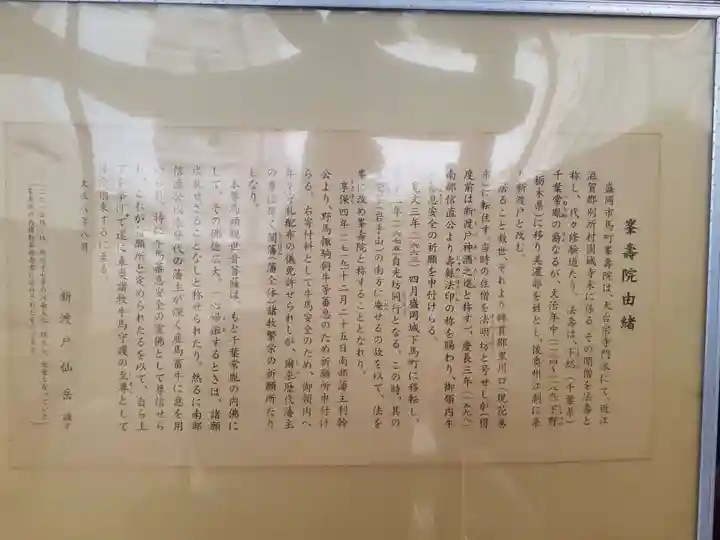 峯壽院由緒
盛岡市馬町峯壽院は、天台宗寺門派にて、近江
滋賀郡別所村園城寺末に係る。その開僧を法壽と
称し、代々修験道たり。法壽は、下総(千葉県)
千葉常胤の裔なるが、大治年中(一一二六~一一三一)下野
(栃木県)に移り美濃部を姓とし、後奥州江刺に来
り新渡戸と改む。
ること数世、それより稗貫郡里川口(現花巻
市)に転住す。当時の住僧を法明坊と号せしが(俗
産前は新渡戸神酒之進と称す)、慶長三年(一五九八)
南部信直公より壽縁法印の称を賜わり、御領内牛
馬息安全の祈願を申付けらる。
寛文三年(一六六三)四月盛岡城下馬町に移転し、
年(一六七五)自光坊同行となる。この時、其の
(岩手山)の南方に庵せるの故を以て、法を
峯に改め峯壽院と称することとなれり。
享保四年(一七一九)十二月二十五日南部藩主利幹
公より、野馬諸駒飼牛等蕃息のため祈願所申付け
らる。右寄付料として牛馬安全のため、御領内へ
年々守札配布の儀免許せられしが、爾来歴代藩主
の尊信厚く、闔藩(藩全体)諸牧繁栄の祈願所たり
しなり。
本尊馬頭観世音菩薩は、もと千葉常胤の内佛に
して、その佛徳広大、一心帰依するときは、諸願
成就せざることなしと称せられたり。然るに南部
信直公以来歴代の藩主が深く産馬畜牛に意を用
いられ、特に牛馬蕃息安全の霊佛として尊信せら
れ、これが祈願所と定められたるを以て、自ら上
下を挙げて遂に東奥諸牧牛馬守護の至尊として
帰依渇仰するに至る
大正八年八月
新渡戸仙岳 識す